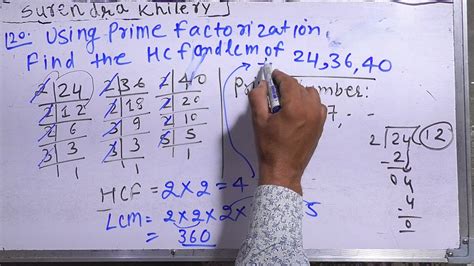 Surendra Khilery
120. Using Prime factorization,
Find the HCF and lcm of 24,36,40
2 24
2 12
2 6
3 3
1
2 36
2 18
3 9
3 3
1
2 40
2 20
2 10
5 5
1
HCF = 2×2 = 4
Lcm = 2×2×2× 5
= 360
number:
7, - -
2 24 12
2
04
4
0